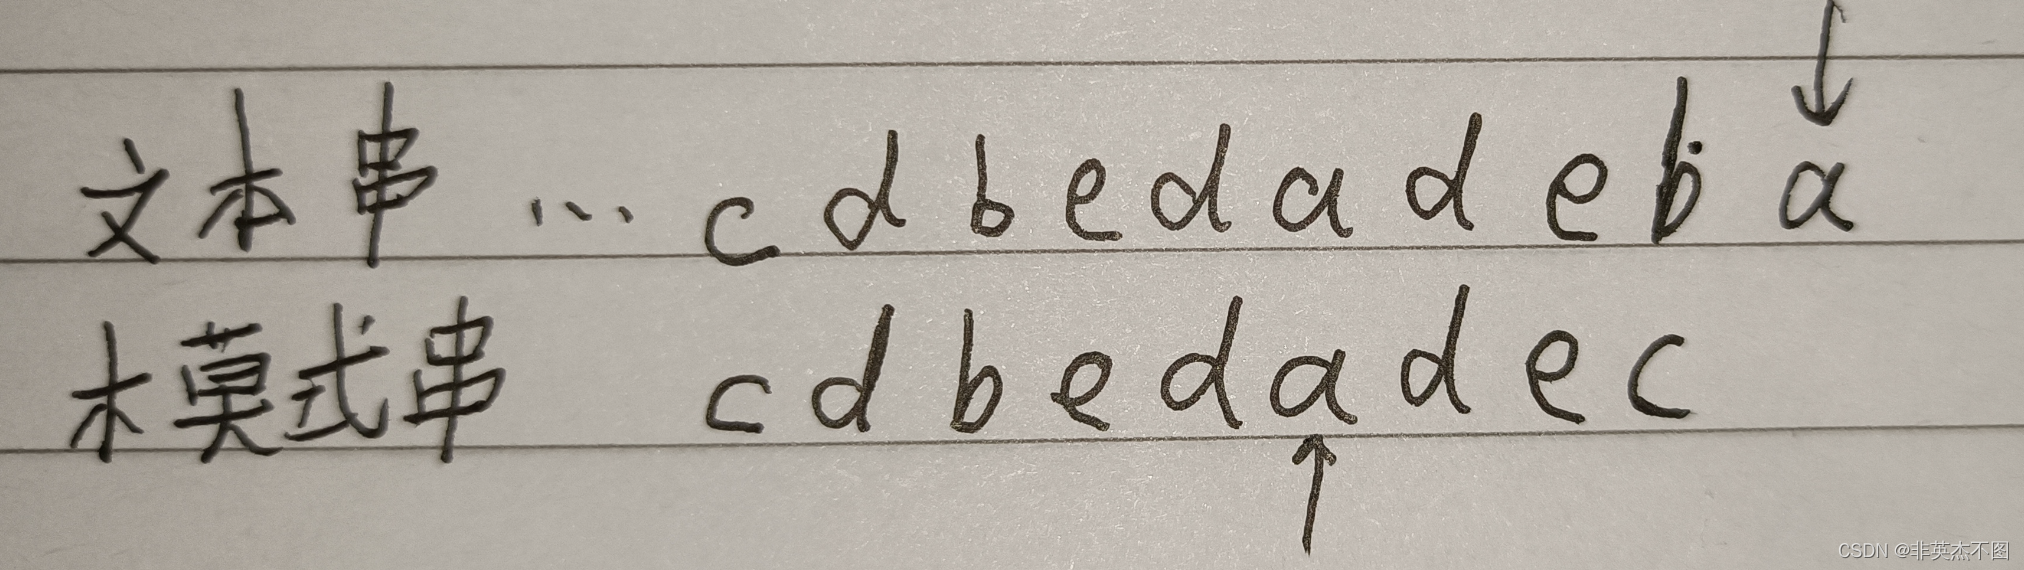 文本串 ... c d b e d a d e b a
模式串 c d b e d a d e c
CSDN @非英杰不图